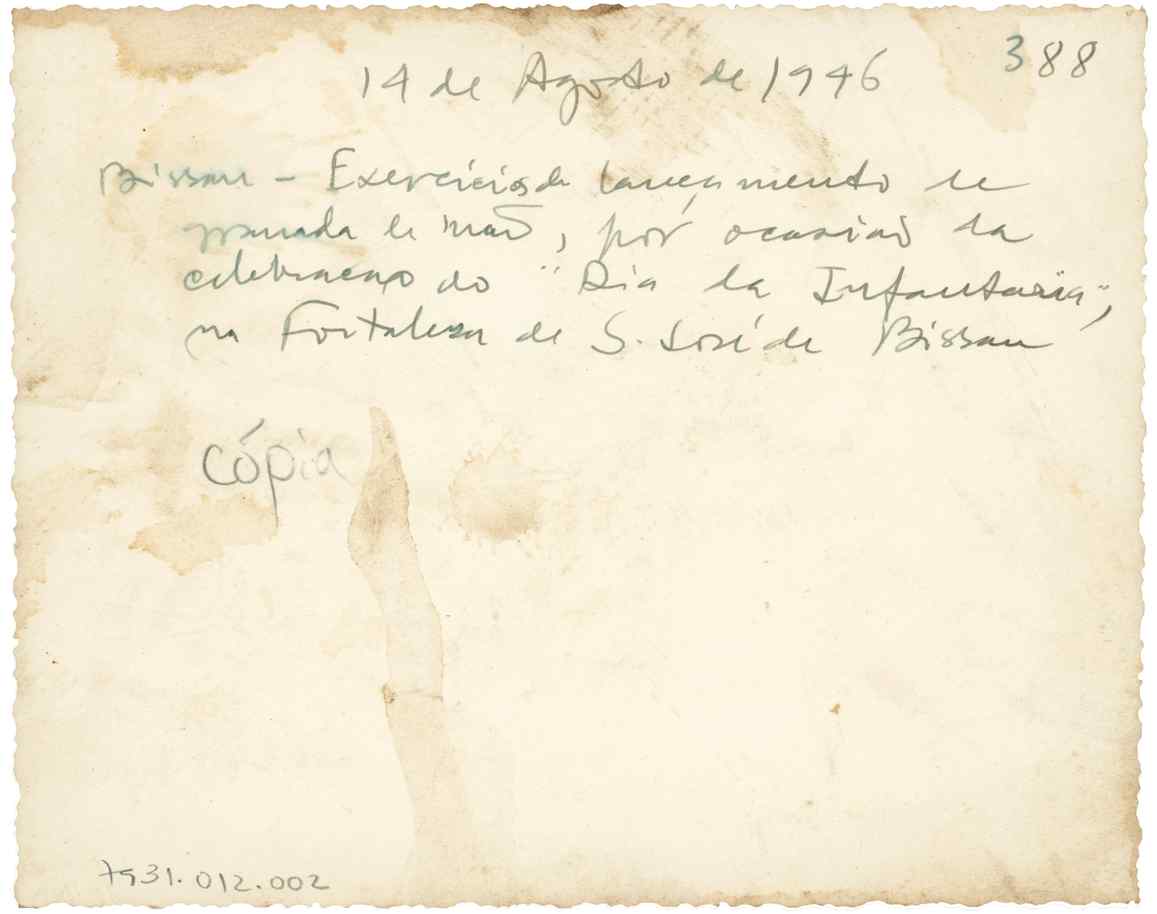 388
14 de Agosto de 1946
Bissau - Exercícios de lançamento de
granada de mão, por ocasião da
celebração do "Dia da Infantaria",
na Fortaleza de S. José de Bissau
cópia
7931.012.002